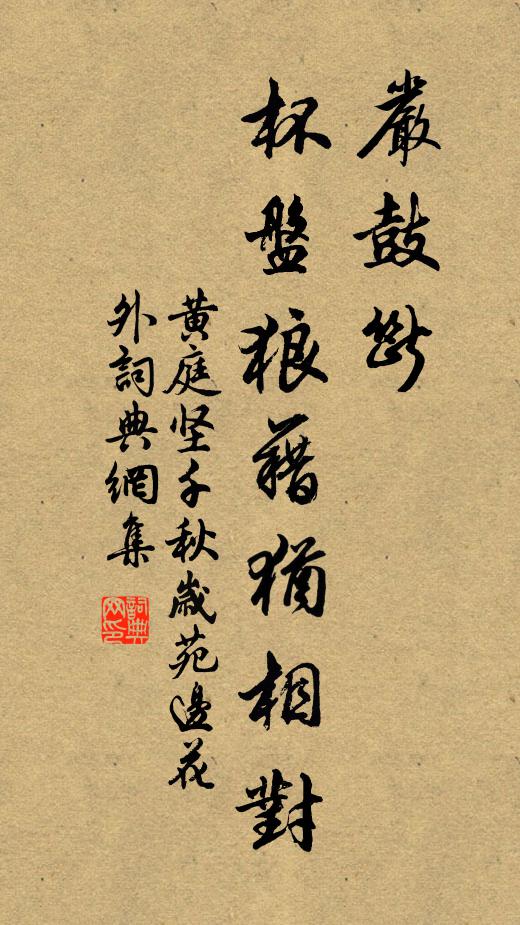 嚴鼓斷
杯盤狼藉猶相對
黄庭坚千秋歲苑邊花
外詞典網集
詞典网印